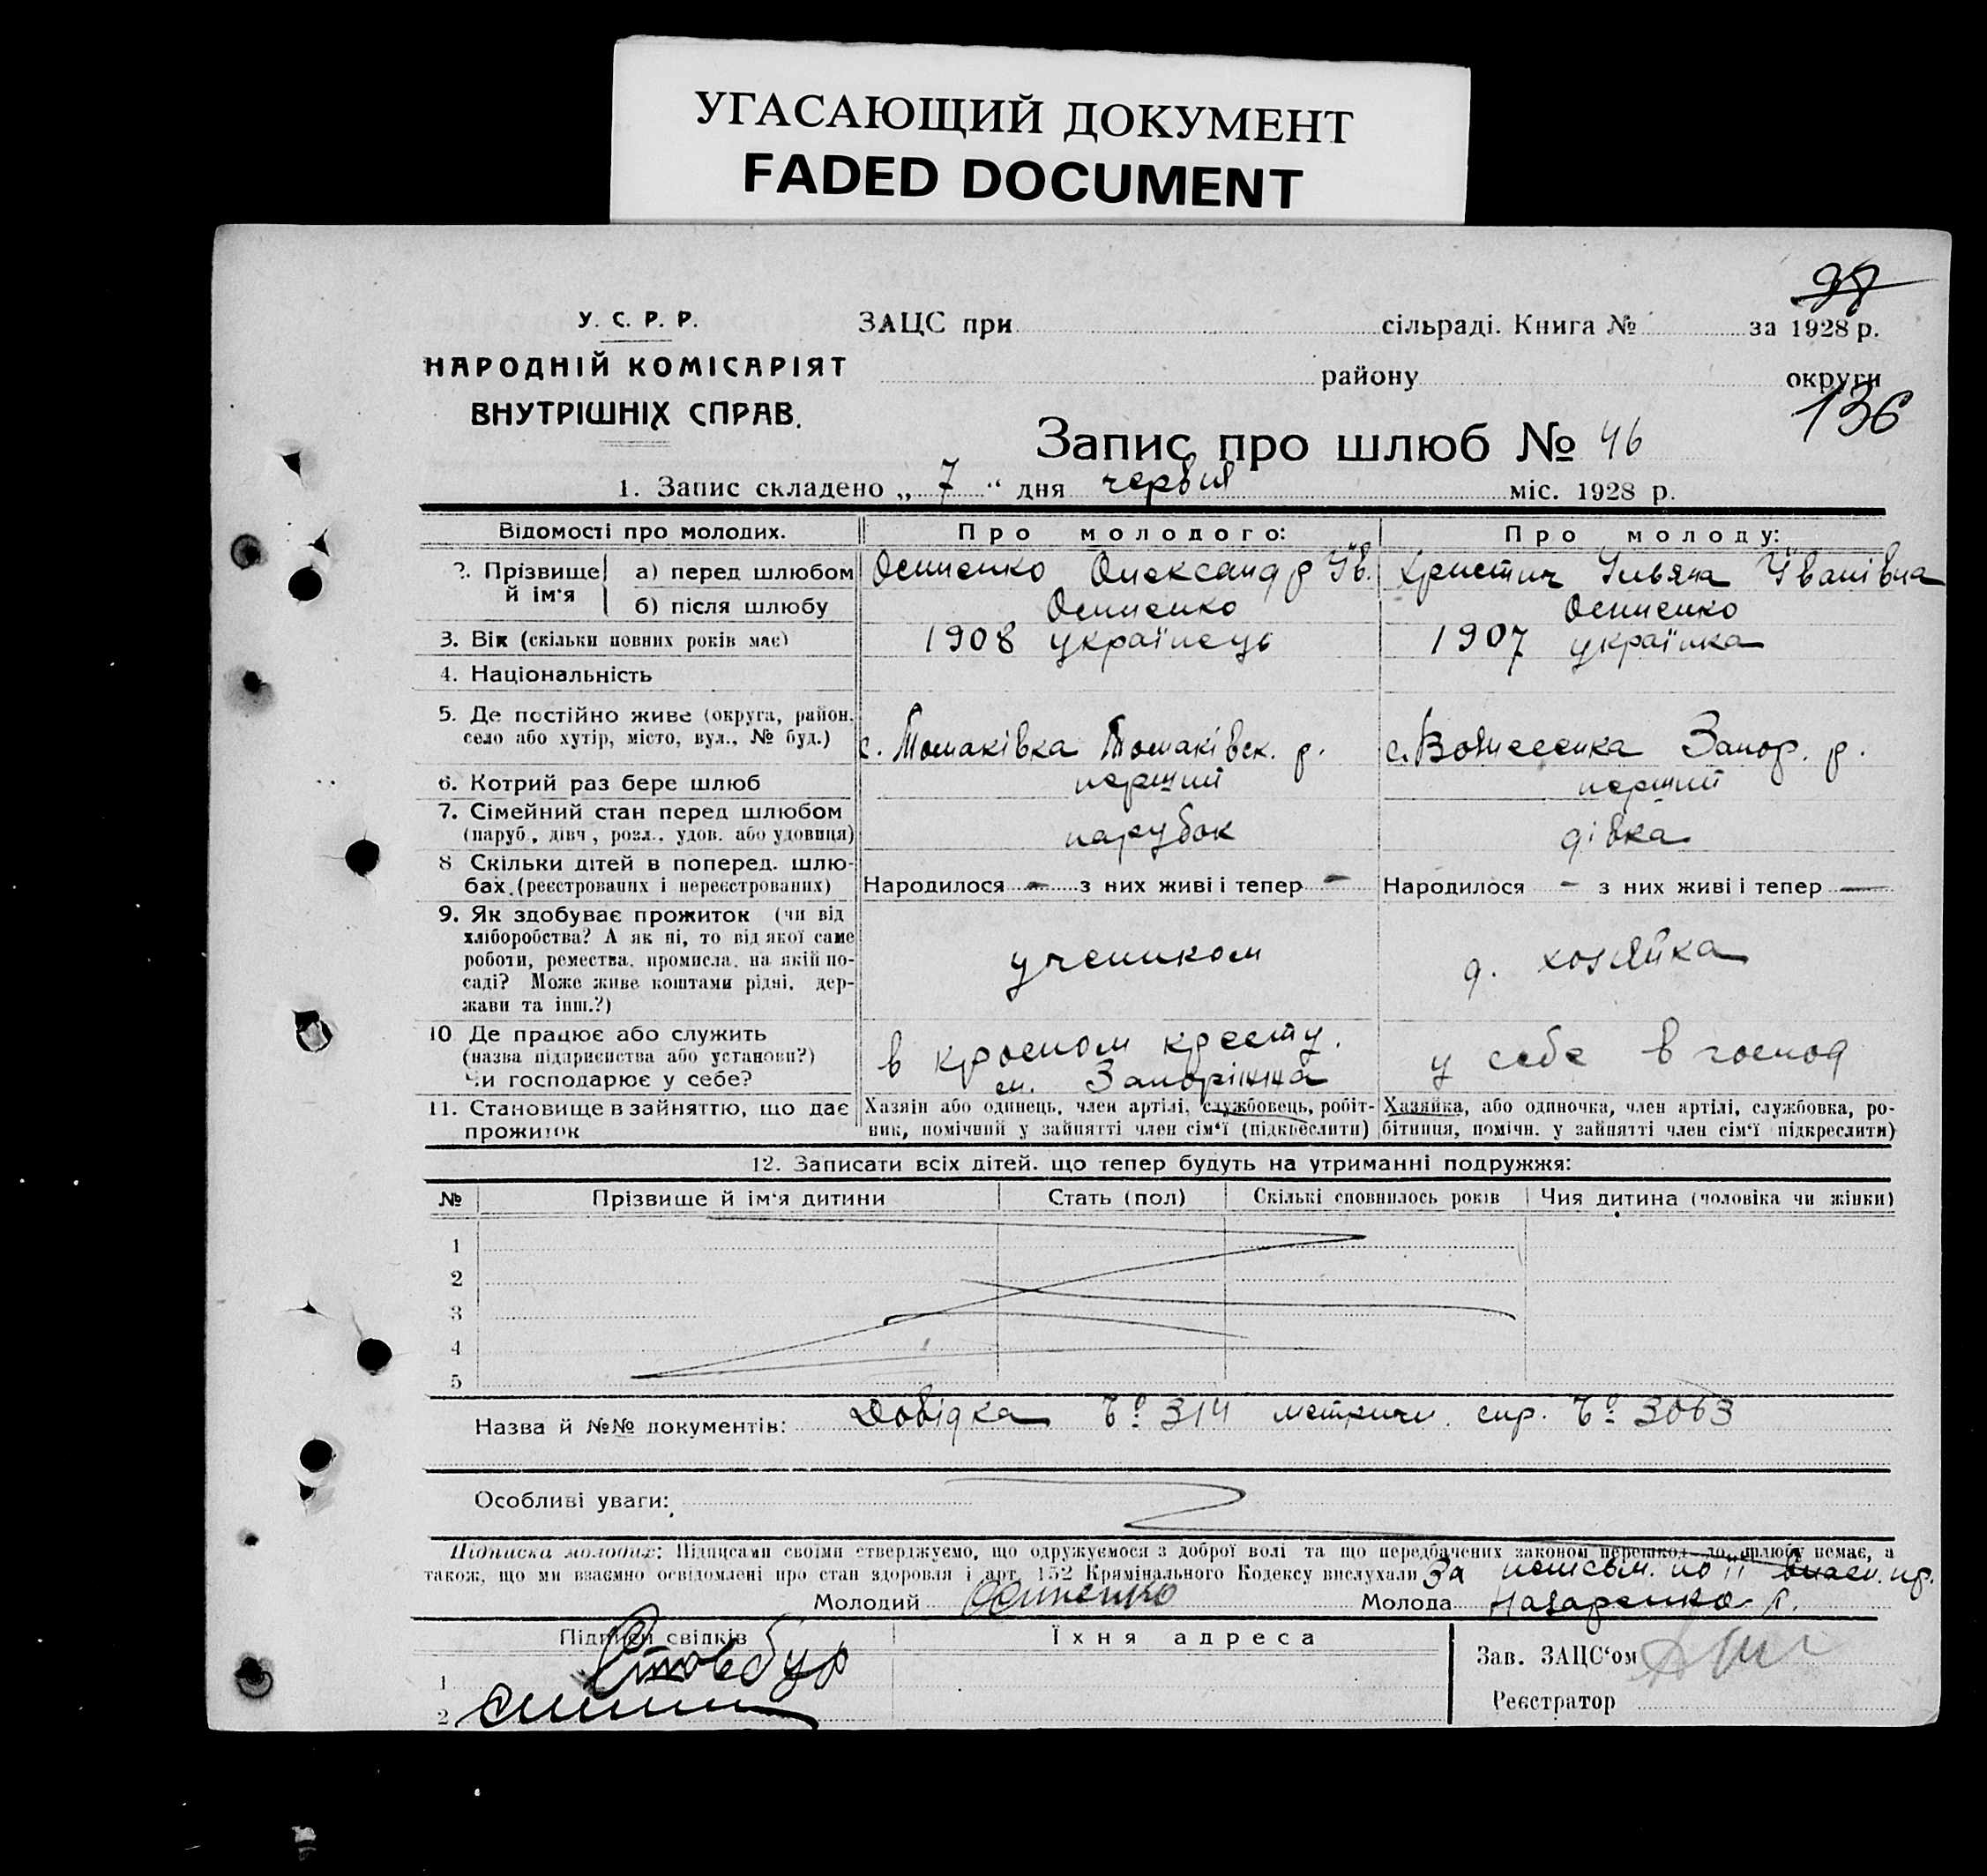 УГАСАЮЩИЙ ДОКУМЕНТ
FADED DOCUMENT
98
У. С. Р. Р.
НАРОДНІЙ КОМІСАРІЯТ
ВНУТРІШНІХ СПРАВ.
ЗАЦС при сільраді. Книга № за 1928 р.
району округи
136
Запис про шлюб № 46
1. Запис складено „ 7 “ дня червня міс. 1928 р.
Відомості про молодих. Про молодого: Про молоду:
2. Прізвище й ім'я а) перед шлюбом Осипенко Олександр Ів. Христич Ульяна Іванівна
б) після шлюбу Осипенко Осипенко
3. Вік (скільки повних років має) 1908 українець 1907 українка
4. Національність
5. Де постійно живе (округа, район, село або хутір, місто, вул., № буд.) с. Томаківка Томаківск. р. с. Вознесенка Запор. р.
6. Котрий раз бере шлюб перший перший
7. Сімейний стан перед шлюбом (паруб., дівч., розл., удов. або удовиця) парубок дівка
8 Скільки дітей в поперед. шлюбах. (реєстрованих і нереєстрованих) Народилося - з них живі і тепер - Народилося - з них живі і тепер -
9. Як здобуває прожиток (чи від хліборобства? А як ні, то від якої саме роботи, ремества, промисла, на якій посаді? Може живе коштами рідні, держави та інш.?) учеником д. хозяйка
10 Де працює або служить (назва підприємства або установи?) Чи господарює у себе? в красном кресту. м. Запоріжжа у себе в господ
11. Становище в зайняттю, що дає прожиток Хазяїн або одинець, член артілі, службовець, робітник, помічний у зайнятті член сім'ї (підкреслити) Хазяйка, або одиночка, член артілі, службовка, робітниця, помічн. у зайнятті член сім'ї підкреслити)
12. Записати всіх дітей. що тепер будуть на утриманні подружжя:
№ Прізвище й ім'я дитини Стать (пол) Скількі сповнилось років Чия дитина (чоловіка чи жінки)
1
2
3
4
5
Назва й №№ документів: Довідка № 314 метричн. спр. № 3063
Особливі уваги:
Підписка молодих: Підписами своїми стверджуємо, що одружуємося з доброї волі та що передбачених законом перешкод до шлюбу немає, а
також, що ми взаємно освідомлені про стан здоровля і арт. 152 Крямінального Кодексу вислухали За по її пр.
Молодий Осипенко Молода Назаренко
Підписи свідків Їхня адреса Зав. ЗАЦС'ом
1 Стовбур
2
Реєстратор